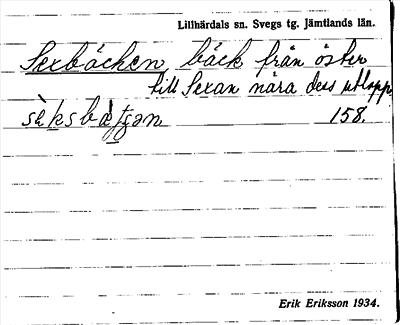 Lillhärdals sn. Svegs tg. Jämtlands län.
Sexbäcken, bäck från öster
till Sexan nära dess utlopp.
158.
Erik Eriksson 1934.